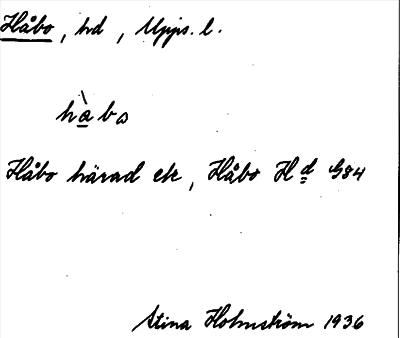 Håbo, hd, Upps. l.
hàbo
Håbo härad ek, Håbo Hd G84
Stina Holmström 1936